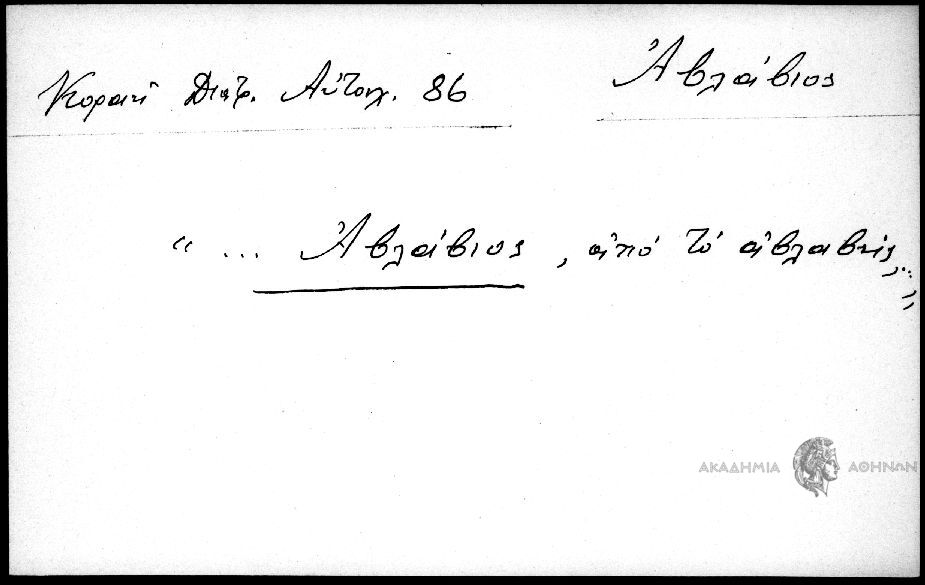 Ἀβλάβιος
Κοραῆ Διατρ. Αὐτοσχ. 86
“ ... Ἀβλάβιος, ἀπό τό ἀβλαβής, ... ”
ΑΚΑΔΗΜΙΑ ΑΘΗΝΩΝ